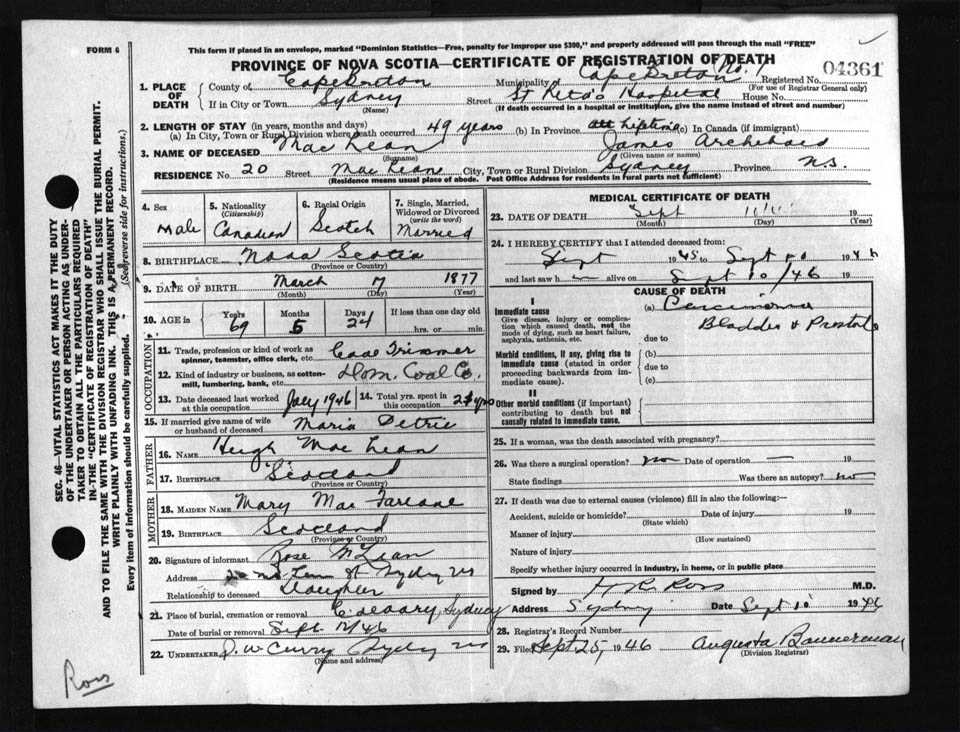 FORM 6
This form if placed in an envelope, marked "Dominion Statistics—Free, penalty for improper use $300," and properly addressed will pass through the mail "FREE"
PROVINCE OF NOVA SCOTIA—CERTIFICATE OF REGISTRATION OF DEATH
04361
1. PLACE OF DEATH County of Cape Breton Municipality of Cape Breton No. 1 Registered No.
(For use of Registrar General only)
If in City or Town Sydney Street St Rita's Hospital House No.
(Name) (If death occurred in a hospital or institution, give the name instead of street and number)
2. LENGTH OF STAY (in years, months and days)
(a) In City, Town or Rural Division where death occurred 49 years (b) In Province lifetime (c) In Canada (if immigrant)
3. NAME OF DECEASED Mac Lean James Archibald
(Surname) (Given name or names)
RESIDENCE No. 20 Street Mac Lean City, Town or Rural Division Sydney Province N.S.
(Residence means usual place of abode. Post Office Address for residents in rural parts not sufficient)
4. Sex Male
5. Nationality (Citizenship) Canadian
6. Racial Origin Scotch
7. Single, Married, Widowed or Divorced (write the word) Married
8. BIRTHPLACE Nova Scotia
(Province or Country)
9. DATE OF BIRTH March 7 1877
(Month) (Day) (Year)
10. AGE in Years 69 Months 5 Days 24 If less than one day
hrs. or min.
OCCUPATION
11. Trade, profession or kind of work as spinner, teamster, office clerk, etc. Coal Trimmer
12. Kind of industry or business, as cotton-mill, lumbering, bank, etc. Dom. Coal Co.
13. Date deceased last worked at this occupation July 1946
14. Total yrs. spent in this occupation yrs
15. If married give name of wife or husband of deceased Maria Petrie
FATHER
16. NAME Hugh Mac Lean
17. BIRTHPLACE Scotland
(Province or Country)
MOTHER
18. MAIDEN NAME Mary Mac Farlane
19. BIRTHPLACE Scotland
(Province or Country)
20. Signature of informant Rose McLean
Address St Sydney NS
Relationship to deceased Daughter
21. Place of burial, cremation or removal Calvary, Sydney
Date of burial or removal Sept 12/46
22. UNDERTAKER J. W Curry Sydney NS
(Name and address)
MEDICAL CERTIFICATE OF DEATH
23. DATE OF DEATH Sept 19
(Month) (Day) (Year)
24. I HEREBY CERTIFY that I attended deceased from:
Sept 1945 to Sept 10 194
and last saw h alive on Sept 10/46 19
CAUSE OF DEATH
I
Immediate cause
Give disease, injury or complication which caused death, not the mode of dying, such as heart failure, asphyxia, asthenia, etc.
(a) Carcinoma
Bladder & Prostate
due to
Morbid conditions, if any, giving rise to immediate cause (stated in order proceeding backwards from immediate cause).
(b)
due to
(c)
II
Other morbid conditions (if important) contributing to death but not causally related to immediate cause.
25. If a woman, was the death associated with pregnancy?
26. Was there a surgical operation? no Date of operation — 19
State findings Was there an autopsy? no
27. If death was due to external causes (violence) fill in also the following:—
Accident, suicide or homicide? Date of injury 19
(State which)
Manner of injury
(How sustained)
Nature of injury
Specify whether injury occurred in industry, in home, or in public place
Signed by H R Ross M.D.
Address Sydney Date Sept 10 1946
28. Registrar's Record Number
29. Filed Sept 25, 1946 Augusta Bannerman
(Division Registrar)
SEC. 46—VITAL STATISTICS ACT MAKES IT THE DUTY
OF THE UNDERTAKER OR PERSON ACTING AS UNDER-
TAKER TO OBTAIN ALL THE PARTICULARS REQUIRED
IN THE "CERTIFICATE OF REGISTRATION OF DEATH"
AND TO FILE THE SAME WITH THE DIVISION REGISTRAR WHO SHALL ISSUE THE BURIAL PERMIT.
WRITE PLAINLY WITH UNFADING INK. THIS IS A PERMANENT RECORD.
Every item of information should be carefully supplied. (See reverse side for instructions.)
Ross